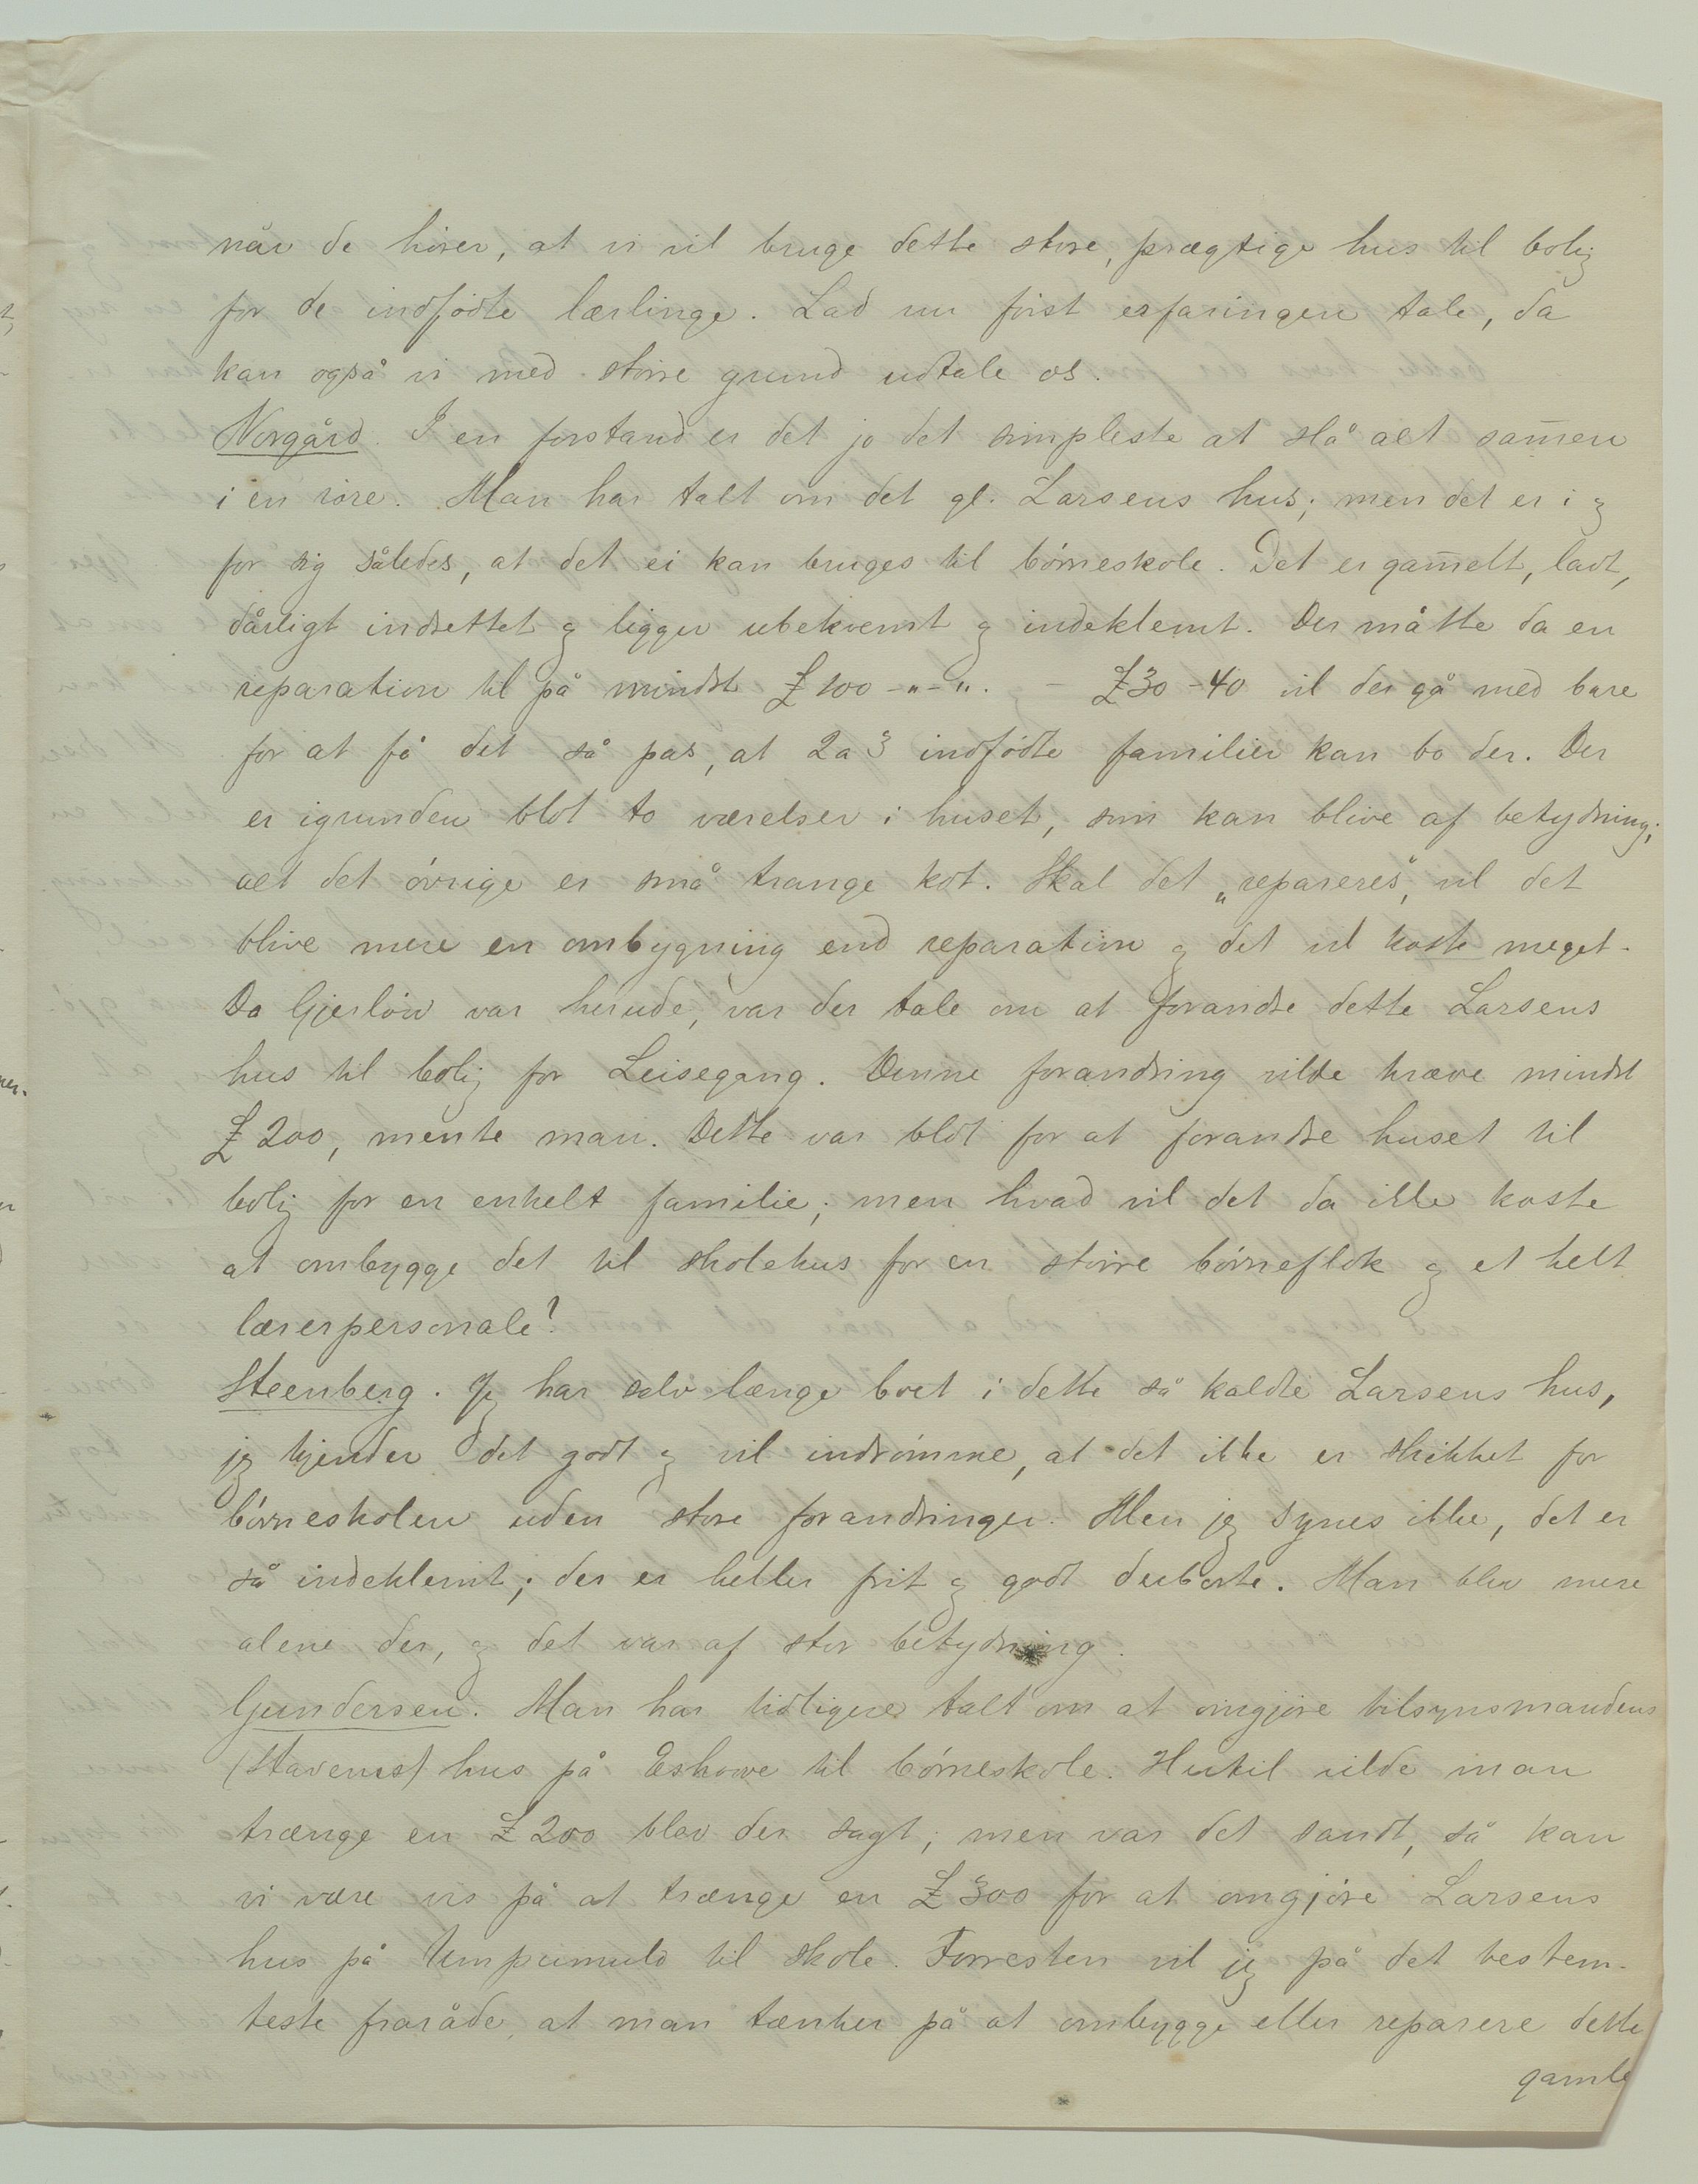 når de hører, at vi vil bruge dette store, prægtige hus til bolig
for de indfødte lærlinge. Lad nu først erfaringen tale, da
kan også vi med større grund udtale os.
Norgård. I en forstand er det jo det simpleste at slå alt sam̅en
i en røre. Man har talt om det gl. Larsens hus; men det er i og
for sig således, at det ei kan bruges til børneskole. Det er gam̅elt, lavt,
dårligt indrettet og ligger ubekvemt og indeklemt. Der måtte da en
reparation til på mindst £100-"-". - £30-40 vil der gå med bare
for at få det så pas, at 2 a 3 indfødte familier kan bo der. Der
er igrunden blot to værelser i huset, som kan blive af betydning;
alt det øvrige er små trange kot. Skal det „repareres", vil det
blive mere en ombygning end reparation og det vil koste meget.
Da Gjerløw var herude, var der tale om at forandre dette Larsens
hus til bolig for Leisegang. Denne forandring vilde kræve mindst
£200, mente man. Dette var blot for at forandre huset til
bolig for en enkelt familie; men hvad vil det da ikke koste
at ombygge det til skolehus for en større børneflok og et helt
lærerpersonale?
Steenberg. Jeg har selv længe boet i dette så kaldte Larsens hus,
jeg kjender det godt og vil indrømme, at det ikke er skikket for
børneskolen uden store forandringer. Men jeg synes ikke, det er
så indeklemt; der er heller frit og godt derborte. Man blev mere
alene der, og det var af stor betydning.
Gundersen. Man har tidligere talt om at omgjøre tilsynsmandens
(Stavems) hus på Eshowe til børneskole. Hertil vilde man
trænge en £200 blev der sagt; men var det sandt, så kan
vi være vis på at trænge en £300 for at omgjøre Larsens
hus på Umpumulo til skole. Forresten vil jeg på det bestem-
teste fraråde, at man tænker på at ombygge eller reparere dette
gamle